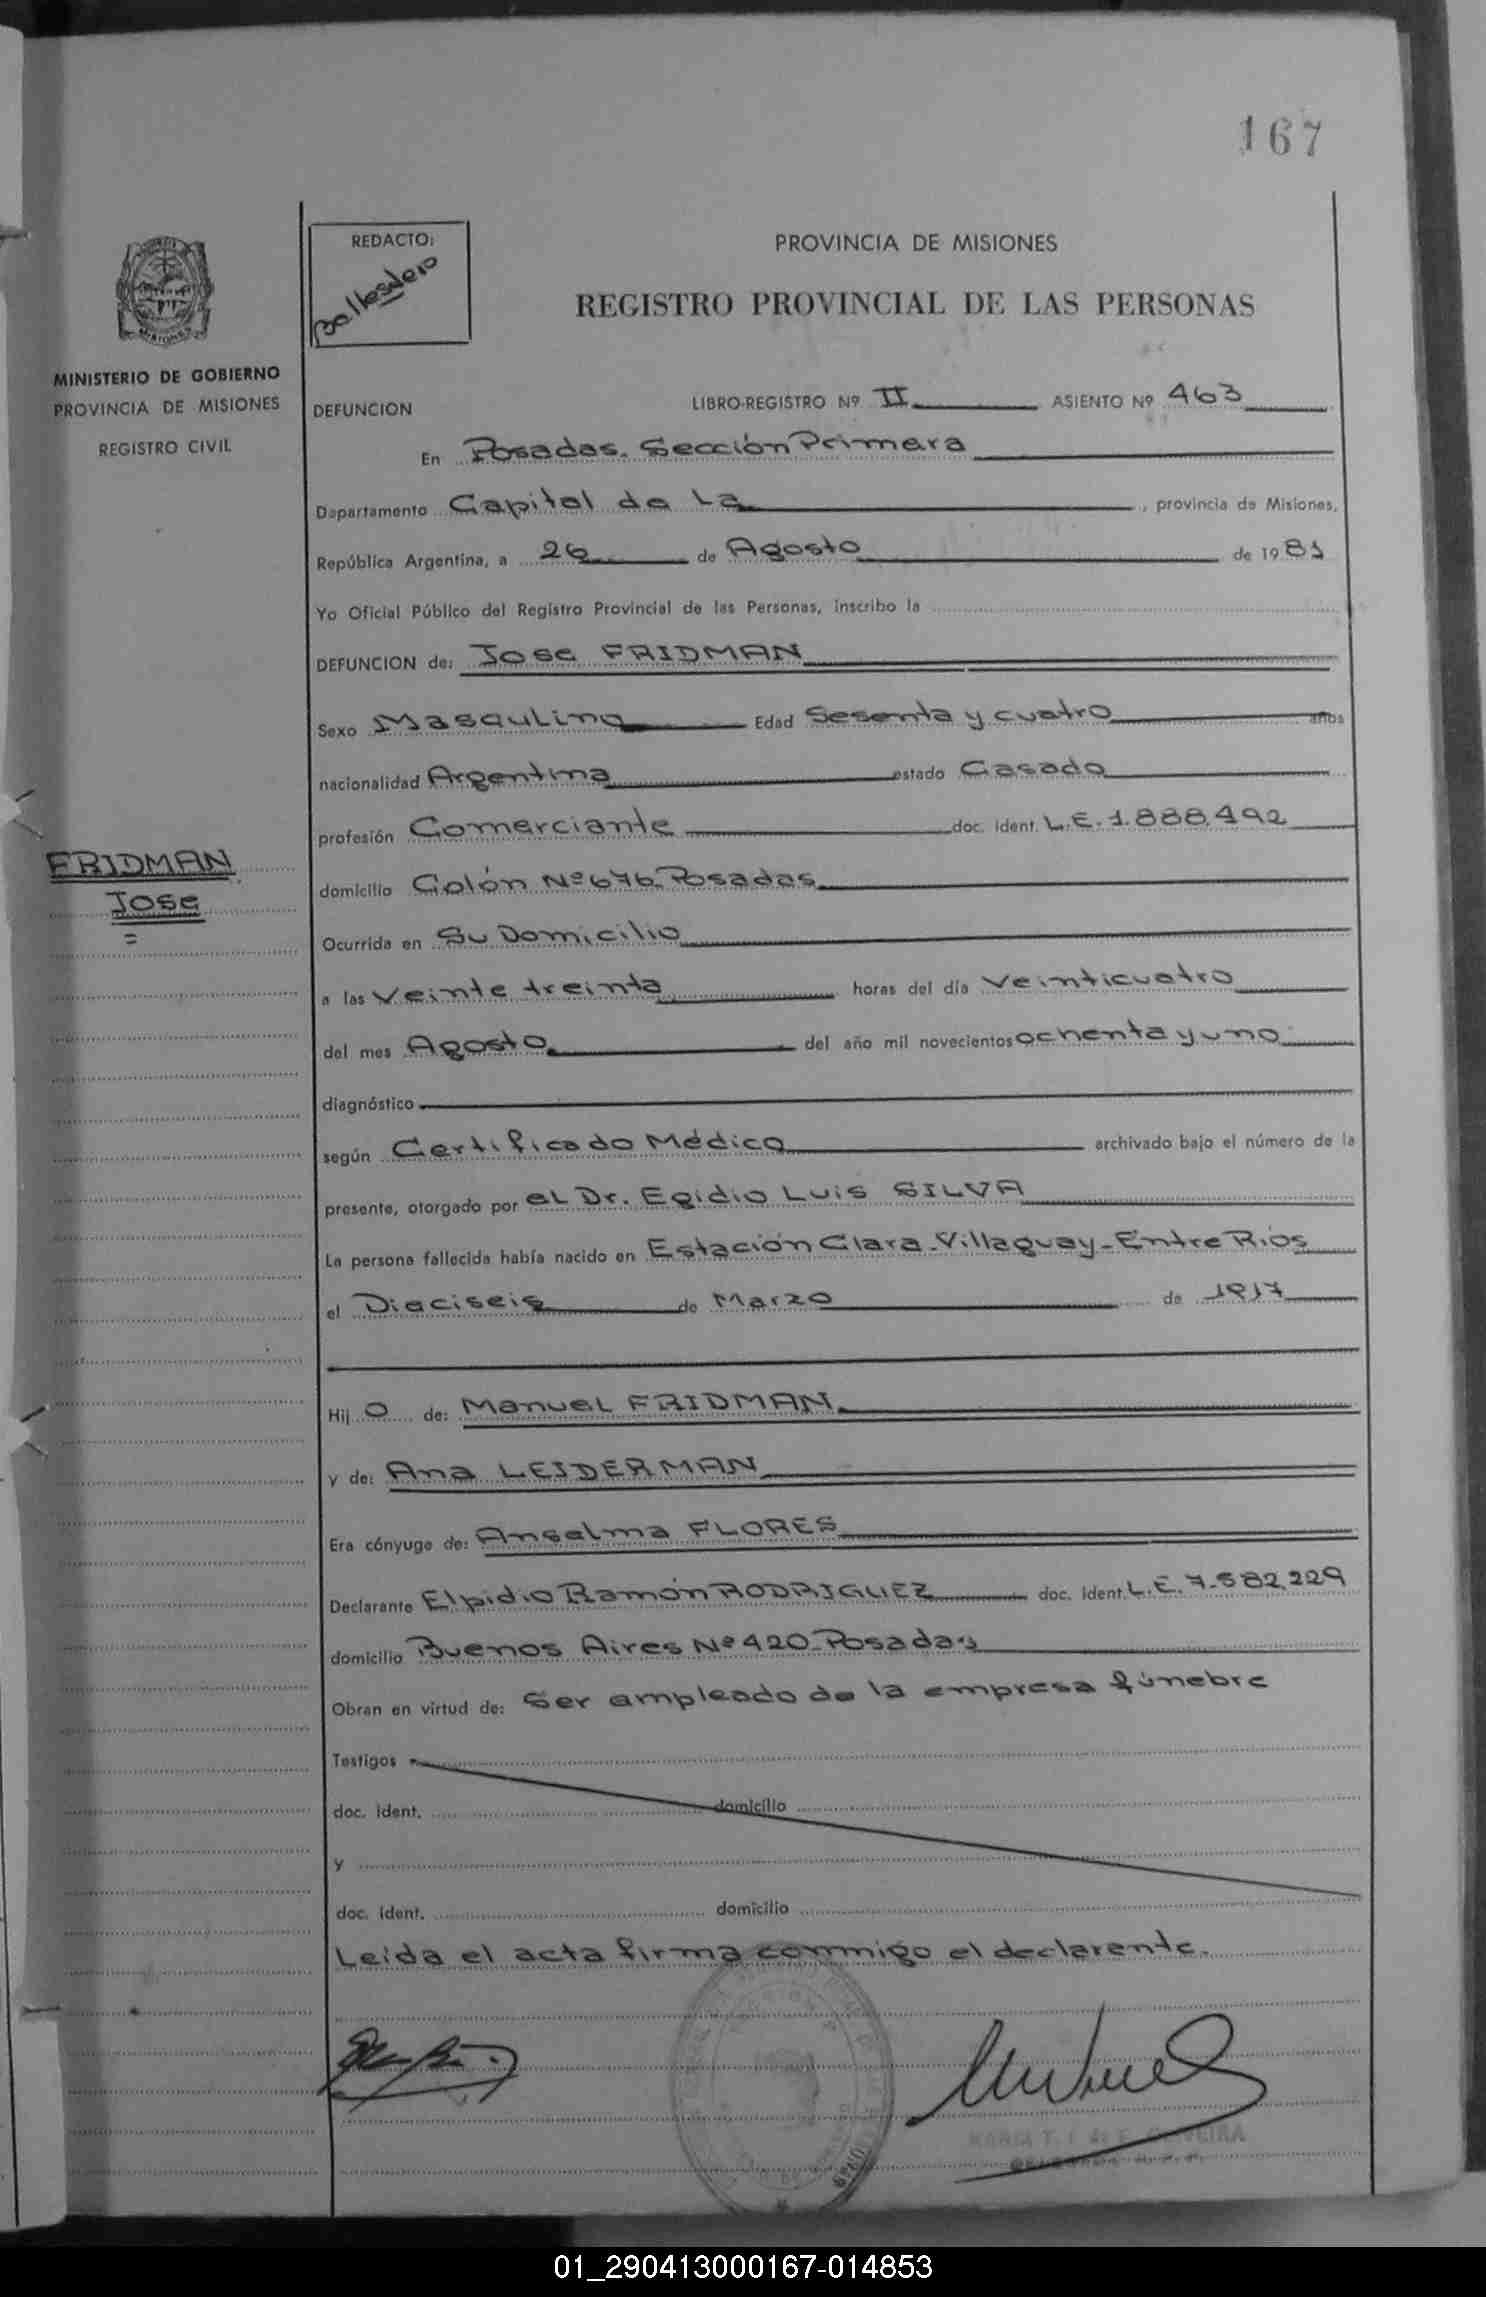 167
REDACTO:
Ballesdero
PROVINCIA DE MISIONES
REGISTRO PROVINCIAL DE LAS PERSONAS
MINISTERIO DE GOBIERNO
PROVINCIA DE MISIONES
REGISTRO CIVIL
DEFUNCION LIBRO-REGISTRO Nº II ASIENTO Nº 463
En Posadas. Sección Primera
Departamento Capital de La, provincia de Misiones,
República Argentina, a 26 de Agosto de 1981
Yo Oficial Público del Registro Provincial de las Personas, inscribo la
DEFUNCION de: Jose FRIDMAN
Sexo Masculino Edad Sesenta y cuatro años
nacionalidad Argentina estado Casado
profesión Comerciante doc. ident. L.E. 1.888.492
FRIDMAN
Jose
=
domicilio Colón Nº 676. Posadas
Ocurrida en Su Domicilio
a las Veinte treinta horas del día Veinticuatro
del mes Agosto del año mil novecientos ochenta y uno
diagnóstico
según Certificado Médico archivado bajo el número de la
presente, otorgado por el Dr. Egidio Luis SILVA
La persona fallecida había nacido en Estación Clara - Villaguay - Entre Ríos
el Dieciseis de Marzo de 1917
Hij o de: Manuel FRIDMAN
y de: Ana LEIDERMAN
Era cónyuge de: Anselma FLORES
Declarante Elpidio Ramón RODRIGUEZ doc. ident. L.E. 7.582.229
domicilio Buenos Aires Nº 420 - Posadas
Obran en virtud de: Ser ampleado de la empresa fúnebre
Testigos
doc. ident. domicilio
y
doc. ident. domicilio
Leída el acta firma conmigo el declarente.
MARIA T.
01_290413000167-014853